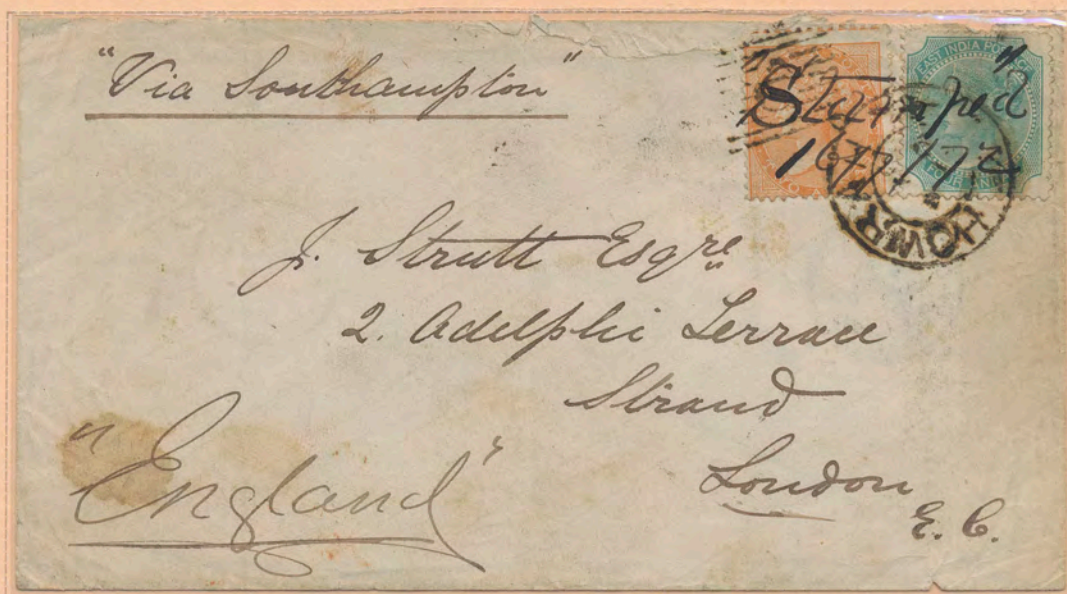 "Via Southampton"
EAST INDIA
Stamped
HOWR
J. Strutt Esqre
2. Adelphi Terrace
Strand
London
E. C.
"England"